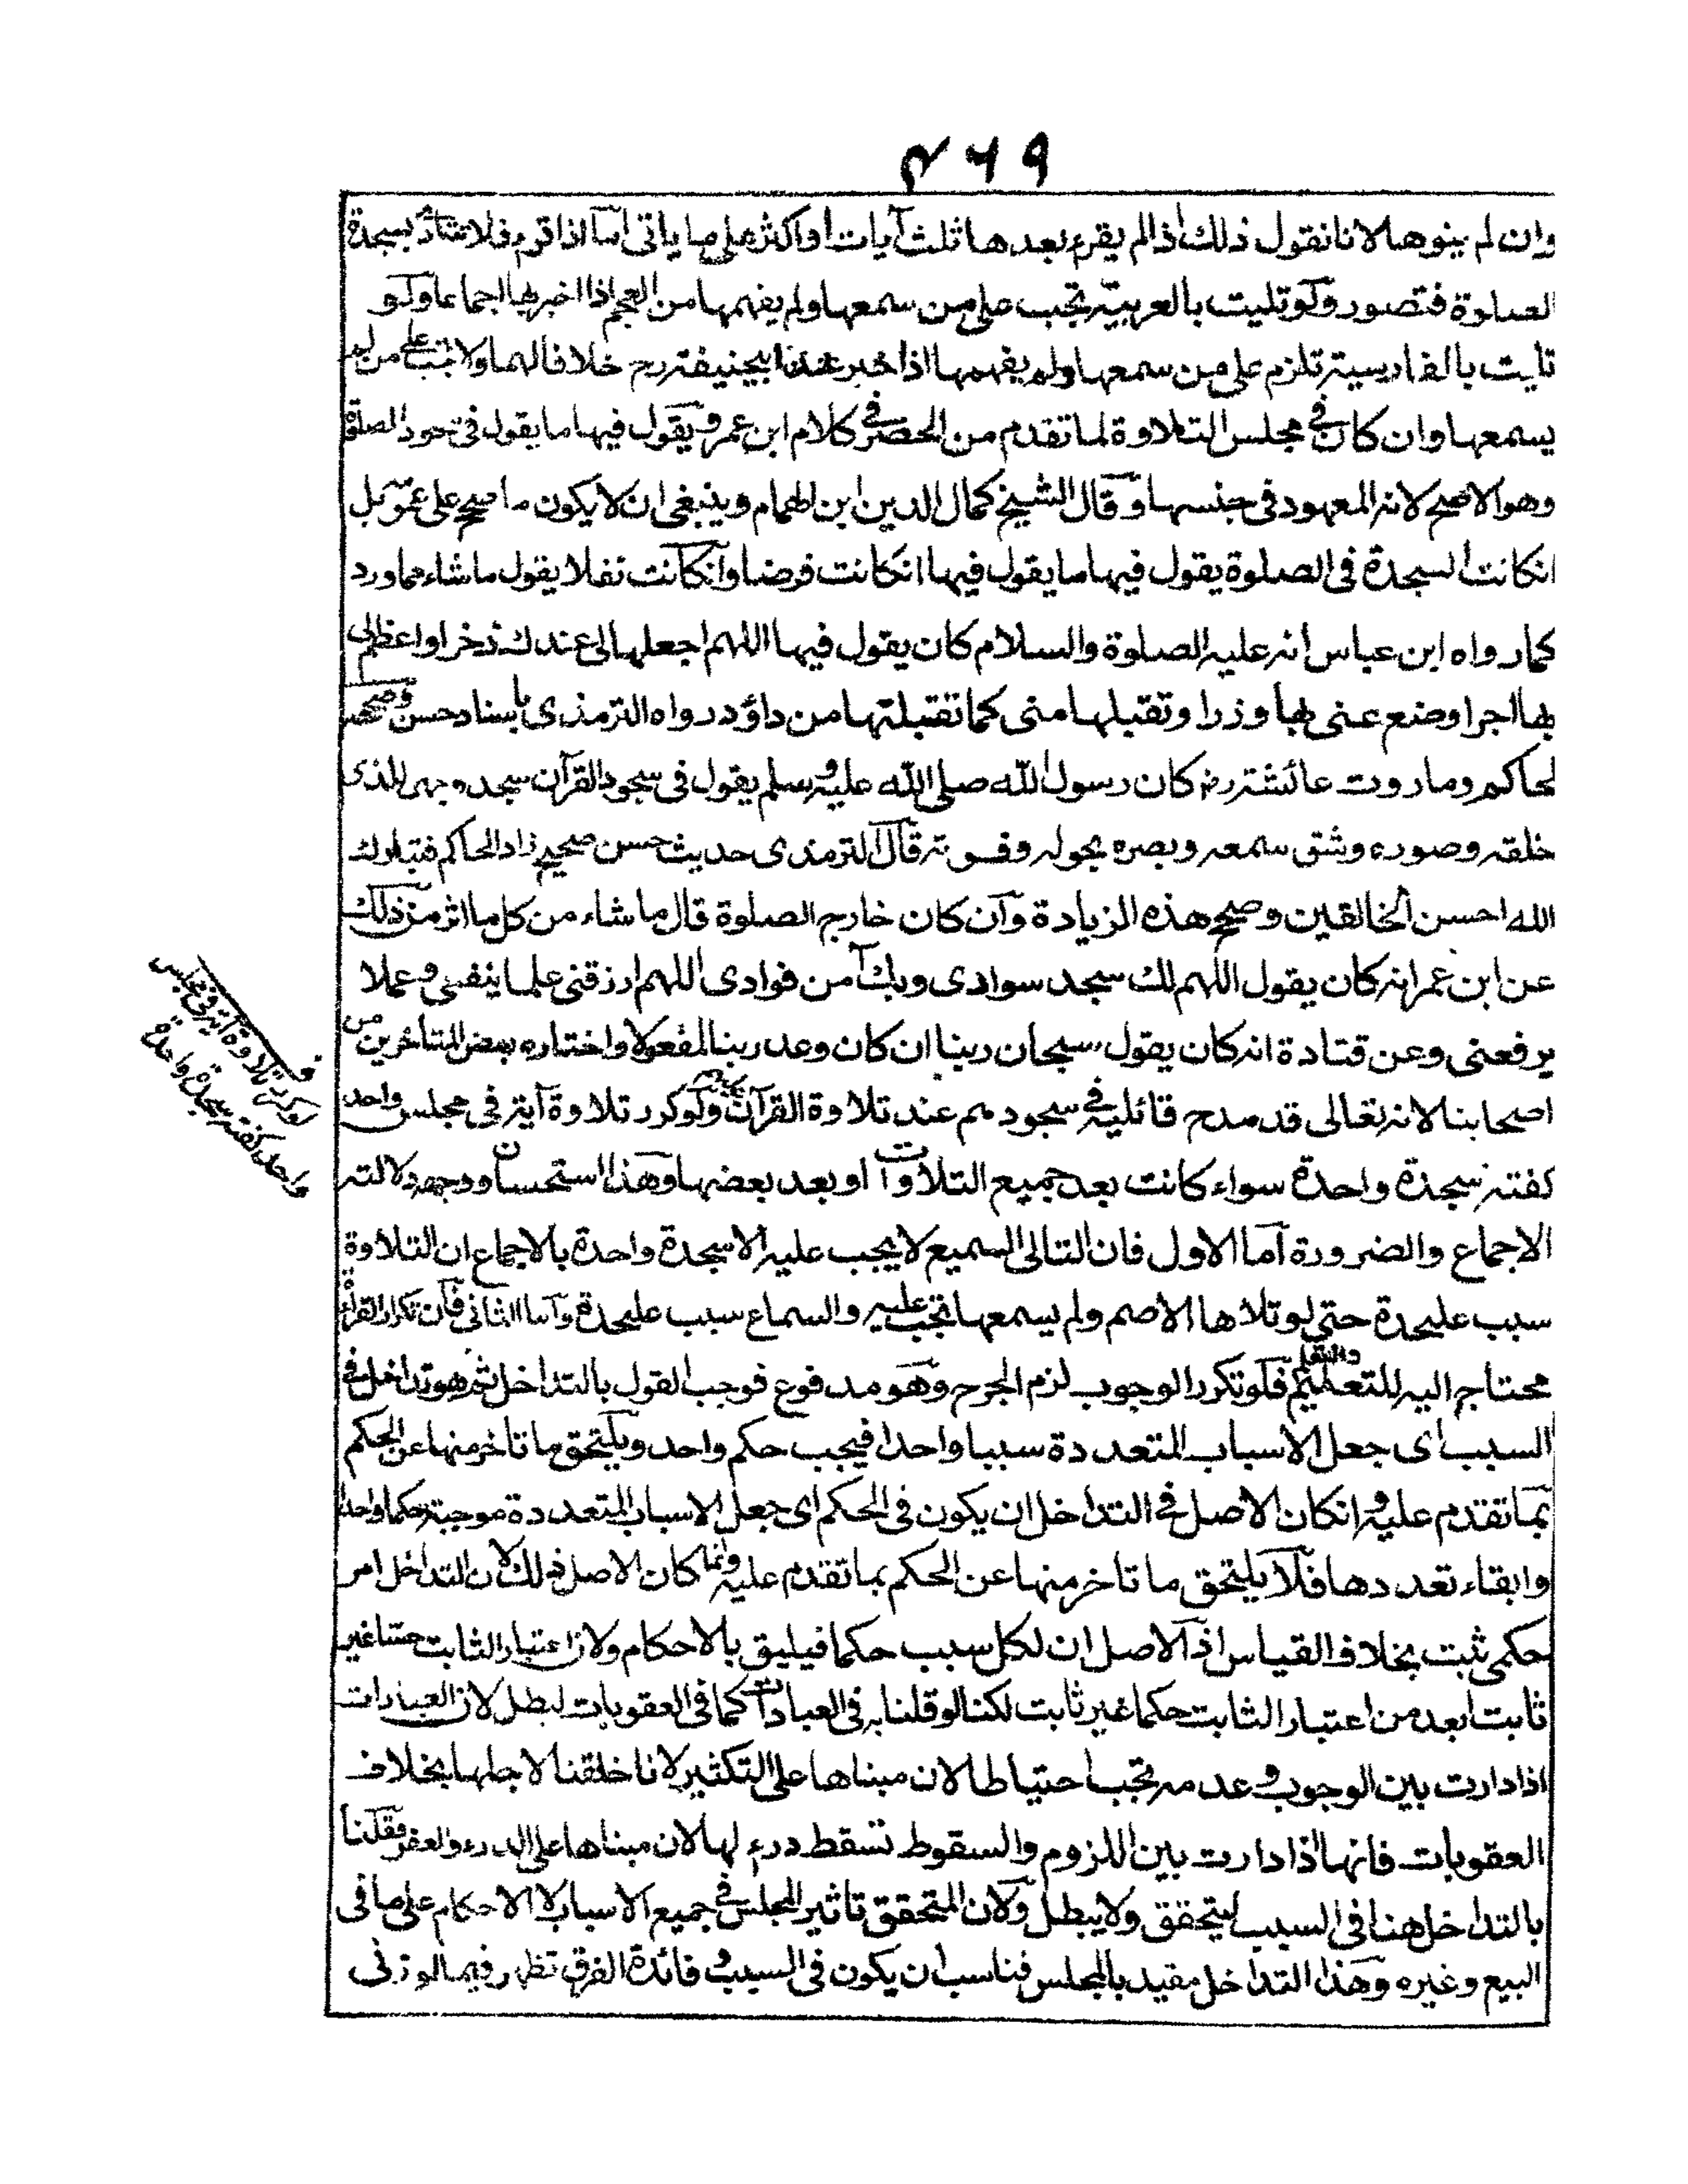 ٤٦٩
وان لم ينوها لانا نقول ذلك اذا لم يقرء بعدها ثلث آيات او اكثر على ما ياتى اما اذا قرء فلا تتأدّ بسجدة
الصلوة فتصور ولو تليت بالعربية تجب على من سمعها ولم يفهمها من العجم اذا اخبر بها اجماعا ولو
تليت بالفارسية تلزم على من سمعها ولم يفهمها اذا اخبر عند ابيحنيفة رح خلافا لهما ولا تجب على من لم
يسمعها وان كان فى مجلس التلاوة لما تقدم من الحصر فى كلام ابن عمر ويقول فيها ما يقول فى سجود الصلوة
وهو الاصح لانه المعهود فى جنسها وقال الشيخ كمال الدين ابن الهمام وينبغى ان لا يكون ما صحح على عمومه بل
انكانت السجدة فى الصلوة يقول فيها ما يقول فيها انكانت فرضا وانكانت نفلا يقول ما شاء مما ورد
كما رواه ابن عباس انه عليه الصلوة والسلام كان يقول فيها اللهم اجعلها لى عندك ذخرا واعظم لى
بها اجرا وضع عنى بها وزرا وتقبلها منى كما تقبلتها من داؤد رواه الترمذى باسناد حسن وصححه
لحاكم وما روت عائشة رض كان رسول الله صلى الله عليه وسلم يقول فى سجود القرآن سجد وجهى للذى
خلقه وصوره وشق سمعه وبصره بحوله وقوته قال الترمذى حديث حسن صحيح زاد الحاكم فتبارك
الله احسن الخالقين وصحح هذه الزيادة وان كان خارج الصلوة قال ما شاء من كل ما اثر من ذلك
عن ابن عمر انه كان يقول اللهم لك سجد سوادى وبك آمن فوادى اللهم ارزقنى علما ينفعنى وعملا
يرفعنى وعن قتادة انه كان يقول سبحان ربنا ان كان وعد ربنا لمفعولا واختاره بعض المتاخرين من
اصحابنا لانه تعالى قد مدح قائليه فى سجودهم عند تلاوة القرآن ولو كرر تلاوة آية فى مجلس واحد
كفته سجدة واحدة سواء كانت بعد جميع التلاوات او بعد بعضها وهذا استحسان ووجهه دلالته
الاجماع والضرورة اما الاول فان التالى السميع لا يجب عليه الا سجدة واحدة بالاجماع ان التلاوة
سبب عليحدة حتى لو تلاها الاصم ولم يسمعها تجب عليه والسماع سبب عليحدة واما الثانى فان تكرار القرأة
محتاج اليه للتعليم والتعلم فلو تكرر الوجوب لزم الحرج وهو مدفوع فوجب القول بالتداخل ثم هو تداخل فى
السبب اى جعل الاسباب المتعددة سببا واحدا فيجب حكم واحد ويلتحق ما تاخر منها عن الحكم
بما تقدم عليه وانكان الاصل فى التداخل ان يكون فى الحكم اى جعل الاسباب المتعددة موجبة حكما واحدا
وابقاء تعددها فلا يلتحق ما تاخر منها عن الحكم بما تقدم عليه وانما كان الاصل ذلك لان التداخل امر
حكمى ثبت بخلاف القياس اذ الاصل ان لكل سبب حكما فيليق بالاحكام ولان اعتبار الثابت حسا غير
ثابت ابعد من اعتبار الثابت حكما غير ثابت لكنا لو قلنا به فى العبادات كما فى العقوبات لبطل لان العبادات
اذا دارت بين الوجوب وعدمه تجب احتياطا لان مبناها على التكثير لانا خلقنا لاجلها بخلاف
العقوبات فانها اذا دارت بين اللزوم والسقوط تسقط درء لها لان مبناها على الدرء والعفو فقلنا
بالتداخل هنا فى السبب ليتحقق ولا يبطل ولان المتحقق تاثير المجلس فى جميع الاسباب لا الاحكام على ما فى
البيع وغيره وهذا التداخل مقيد بالمجلس فناسب ان يكون فى السبب وفائدة الفرق تظهر فيما لو زنى
ف
لو كرر تلاوة آية فى مجلس
واحد كفته سجدة واحدة